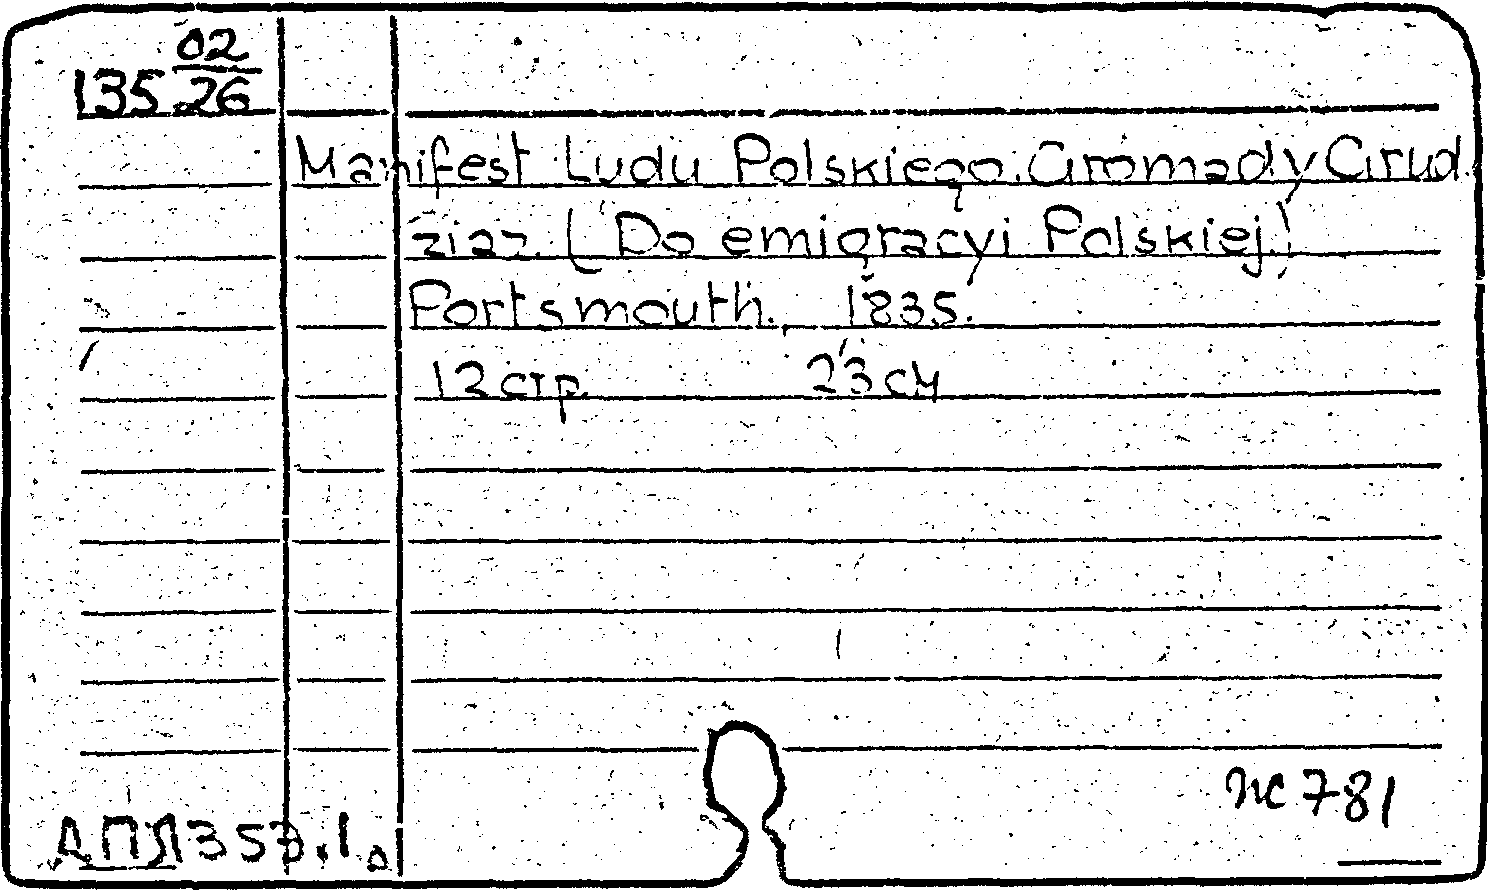 135 02/26
Manifest Ludu Polskiego. Gromady Grud
ziaz. ( Do emigracyi Polskiej.)
Portsmouth., 1835.
12 стр. 23 см
пс 781
ДПЛ 353.1.